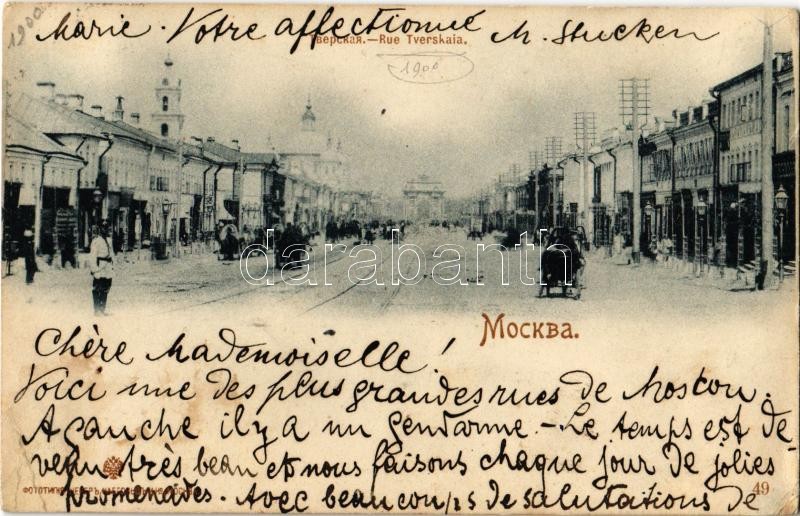 1900
Marie. Votre affectionné M. Stucken
Тверская.—Rue Tverskaïa.
1900
darabanth
Москва.
Chère Mademoiselle!
Voici une des plus grandes rues de Moscou.
A gauche il y a un gendarme. – Le temps est de-
venu très beau et nous faisons chaque jour de jolies
promenades. Avec beaucoups de salutations de
49